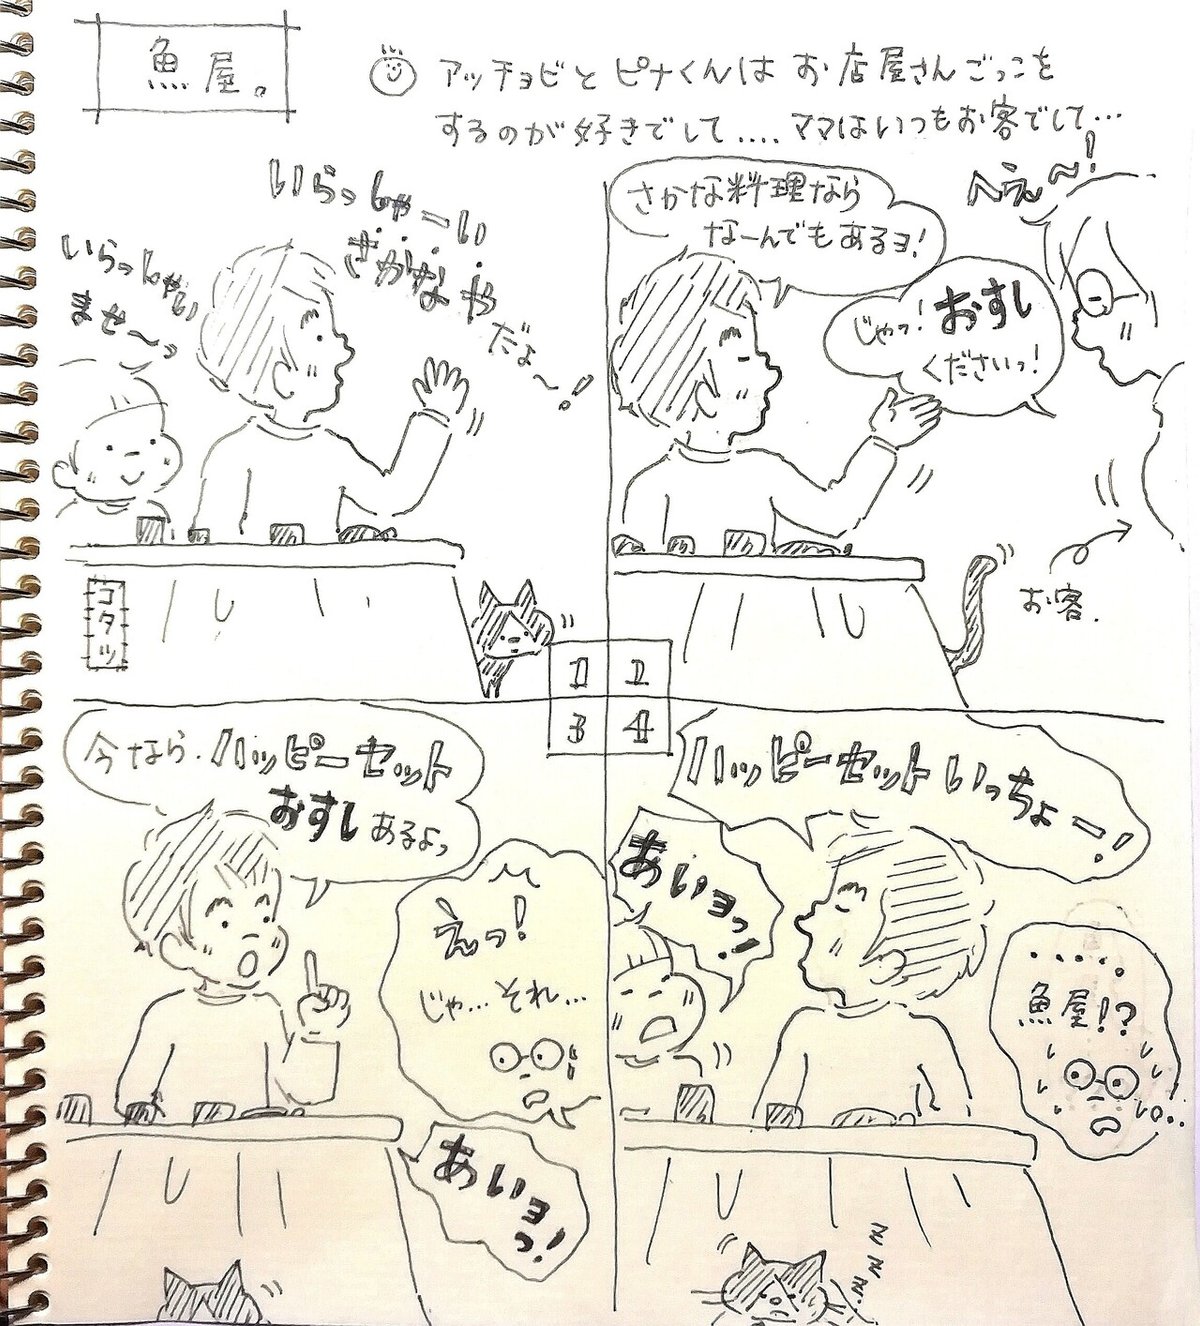 魚屋。
アッチョビと ピナくんは お店屋さんごっこを
するのが 好きでして.... ママはいつもお客でして...
いらっしゃーい
さかなや
だよ〜!
いらっしゃい
ませ〜っ
コタツ
さかな料理なら
なーんでもあるヨ!
へえ〜!
じゃっ! おすし
くださいっ!
お客.
1 2
3 4
今なら、ハッピーセット
おすしあるよっ
えっ!
じゃ...それ...
あいヨっ!
ハッピーセットいっちょー!
あいヨっ!
.....。
魚屋!?